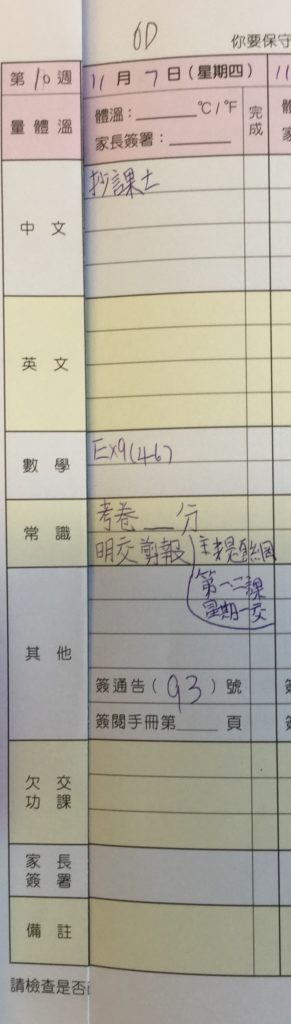 6D
你要保守
第10週 11月7日(星期四) 11
量體溫 體溫：______°C/°F 完成
家長簽署：______
中文 抄課土
英文
數學 Ex9(4-6)
常識 考卷__分
明交剪報
主題網
第一二課
星期一交
其他
簽通告(93)號
簽閱手冊第____頁
欠交功課
家長簽署
備註
請檢查是否